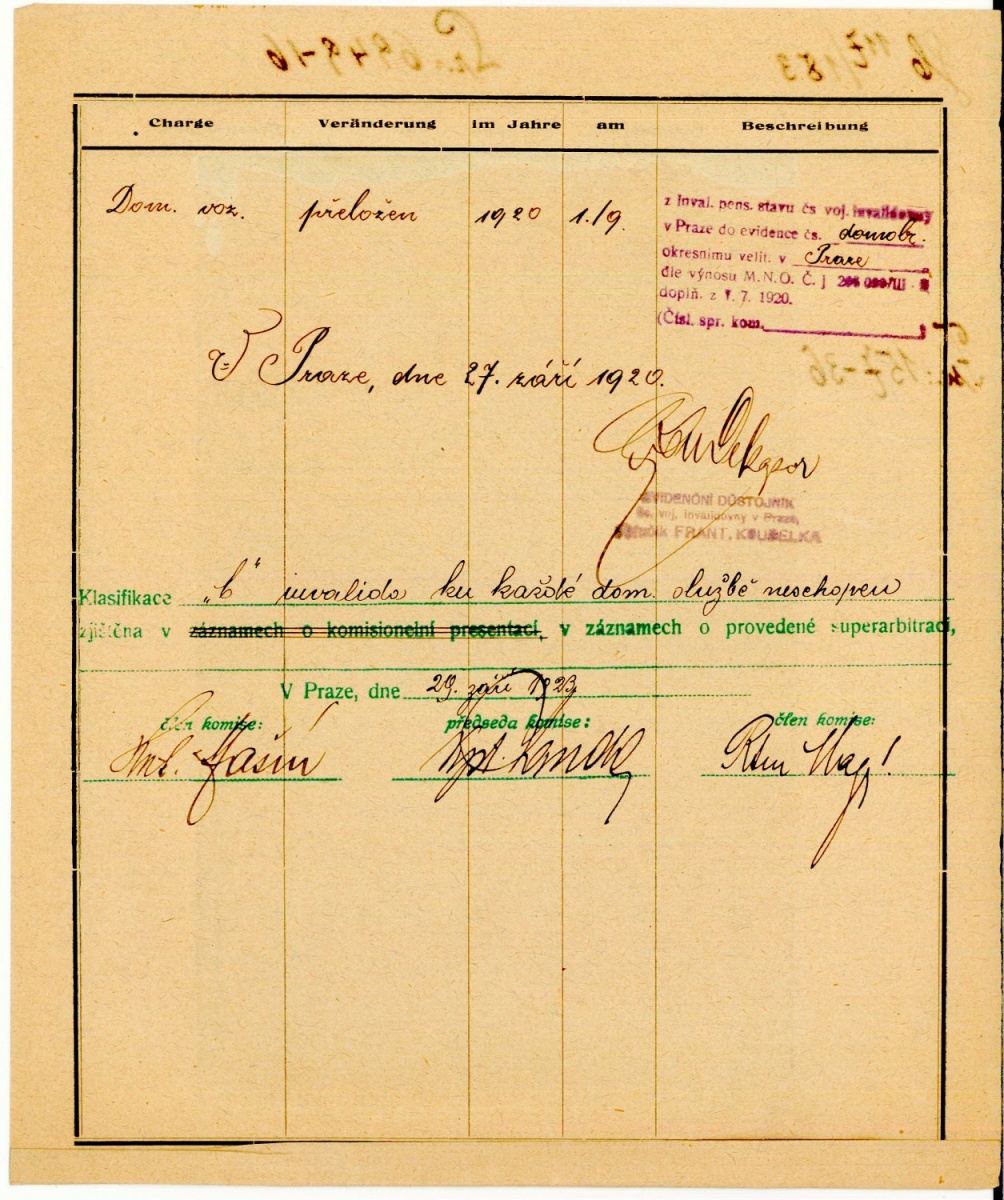 Charge Veränderung im Jahre am Beschreibung
Dom. voz. přeložen 1920 1./9.
z Inval. pens. stavu čs voj. invalidovny
v Praze do evidence čs. domobr.
okresnímu velit. v Praze
dle výnosu M.N.O. Č. j
doplň. z 1. 7. 1920.
(Čísl. spr. kom.
V Praze, dne 27. září 1920.
EVIDENČNÍ DŮSTOJNÍK
čs. voj. invalidovny v Praze,
FRANT. KOUDELKA
Klasifikace „b“ invalida ku každé dom. službě neschopen
zjištěna v záznamech o komisionelní presentaci, v záznamech o provedené superarbitraci,
V Praze, dne 29. září 1923
člen komise: předseda komise: člen komise: